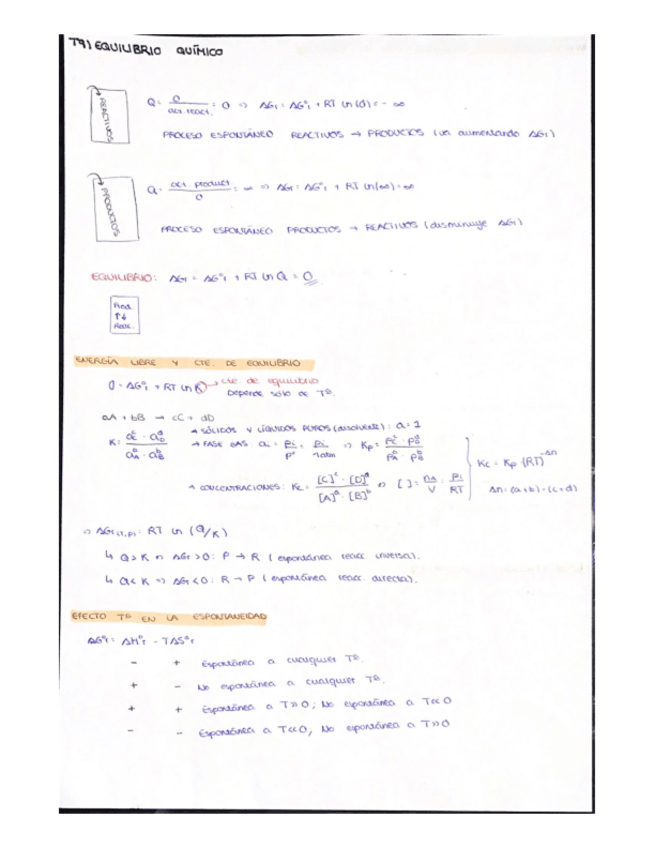 T9) EQUILIBRIO QUÍMICO
REACTIVOS
Q = 0 / act. react. = 0 => ΔGr = ΔG°r + RT ln(0) = - ∞
PROCESO ESPONTÁNEO REACTIVOS → PRODUCTOS (va aumentando ΔGr)
PRODUCTOS
Q = act. product / 0 = ∞ => ΔGr = ΔG°r + RT ln(∞) = ∞
PROCESO ESPONTÁNEO PRODUCTOS → REACTIVOS (disminuye ΔGr)
EQUILIBRIO: ΔGr = ΔG°r + RT ln Q = 0
Prod.
↑↓
Reac.
ENERGÍA LIBRE Y CTE. DE EQUILIBRIO
0 = ΔG°r + RT ln K → cte. de equilibrio
Depende sólo de Tª.
aA + bB → cC + dD
K = a^c_C · a^d_D / a^a_A · a^b_B
→ SÓLIDOS Y LÍQUIDOS PUROS (disolvente): a = 1
→ FASE GAS ai = Pi / P° = Pi / 1atm => Kp = P^c_C · P^d_D / P^a_A · P^b_B
→ CONCENTRACIONES: Kc = [C]^c · [D]^d / [A]^a · [B]^b => [ ] = na / V = Pi / RT
Kc = Kp (RT)^-Δn
Δn = (a+b) - (c+d)
=> ΔGr(T,P) = RT ln (Q/K)
↳ Q > K => ΔGr > 0: P → R (espontánea reacc. inversa).
↳ Q < K => ΔGr < 0: R → P (espontánea reacc. directa).
EFECTO Tª EN LA ESPONTANEIDAD
ΔG°r = ΔH°r - TΔS°r
- + Espontánea a cualquier Tª.
+ - No espontánea a cualquier Tª.
+ + Espontánea a T>>0; No espontánea a T<<0
- - Espontánea a T<<0; No espontánea a T>>0